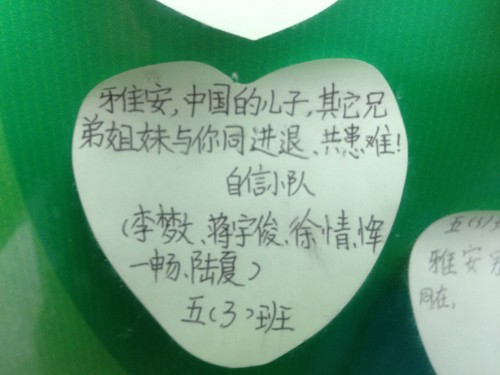 牙隹安,中国的儿子,其它兄
弟姐妹与你同进退、共患难!
自信小队
(李梦、蒋宇俊、徐情、恽
一畅、陆夏)
五(3)班
五(3)
雅安
同在。